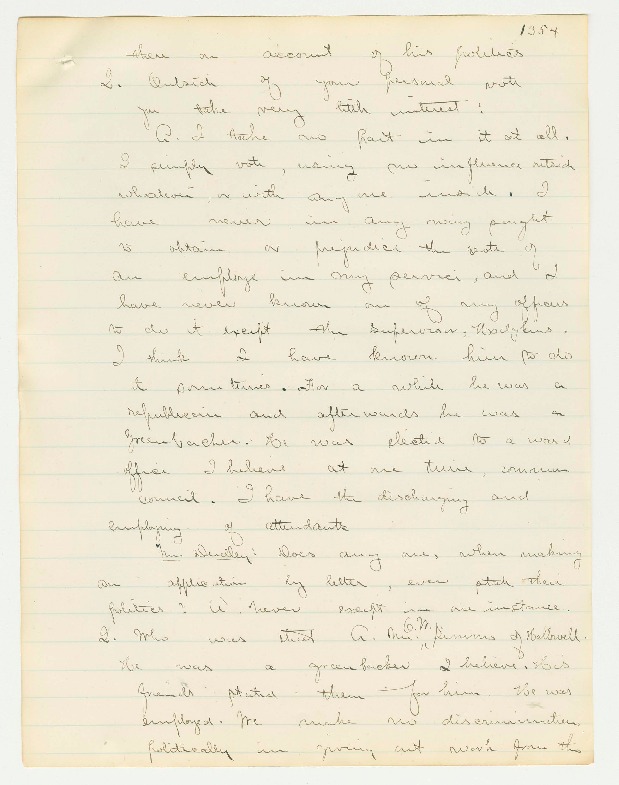 1354
there on account of his politics
Q. Outside of your personal vote
you take very little interest?
A. I take no part in it at all.
I simply vote, using no influence outside
whatever or with any one inside. I
have never in any way sought
to obtain or prejudice the vote of
an employe in my service, and I
have never known one of my officers
to do it except the supervisor, Hodgkins.
I think I have known him to do
it sometimes. For a while he was a
republican and afterwards he was a
Greenbacker. He was elected to a ward
office I believe at one time, common
council. I have the discharging and
employing of attendants
Mr. Dudley: Does any one, when making
an application by letter, ever state their
politics? A. Never except in one instance.
Q. Who was that A. Mr. C.W. Simmons of Hallowell.
He was a greenbacker I believe. His
friends stated them for him He was
employed. We make no discrimination
politically in giving out work from the